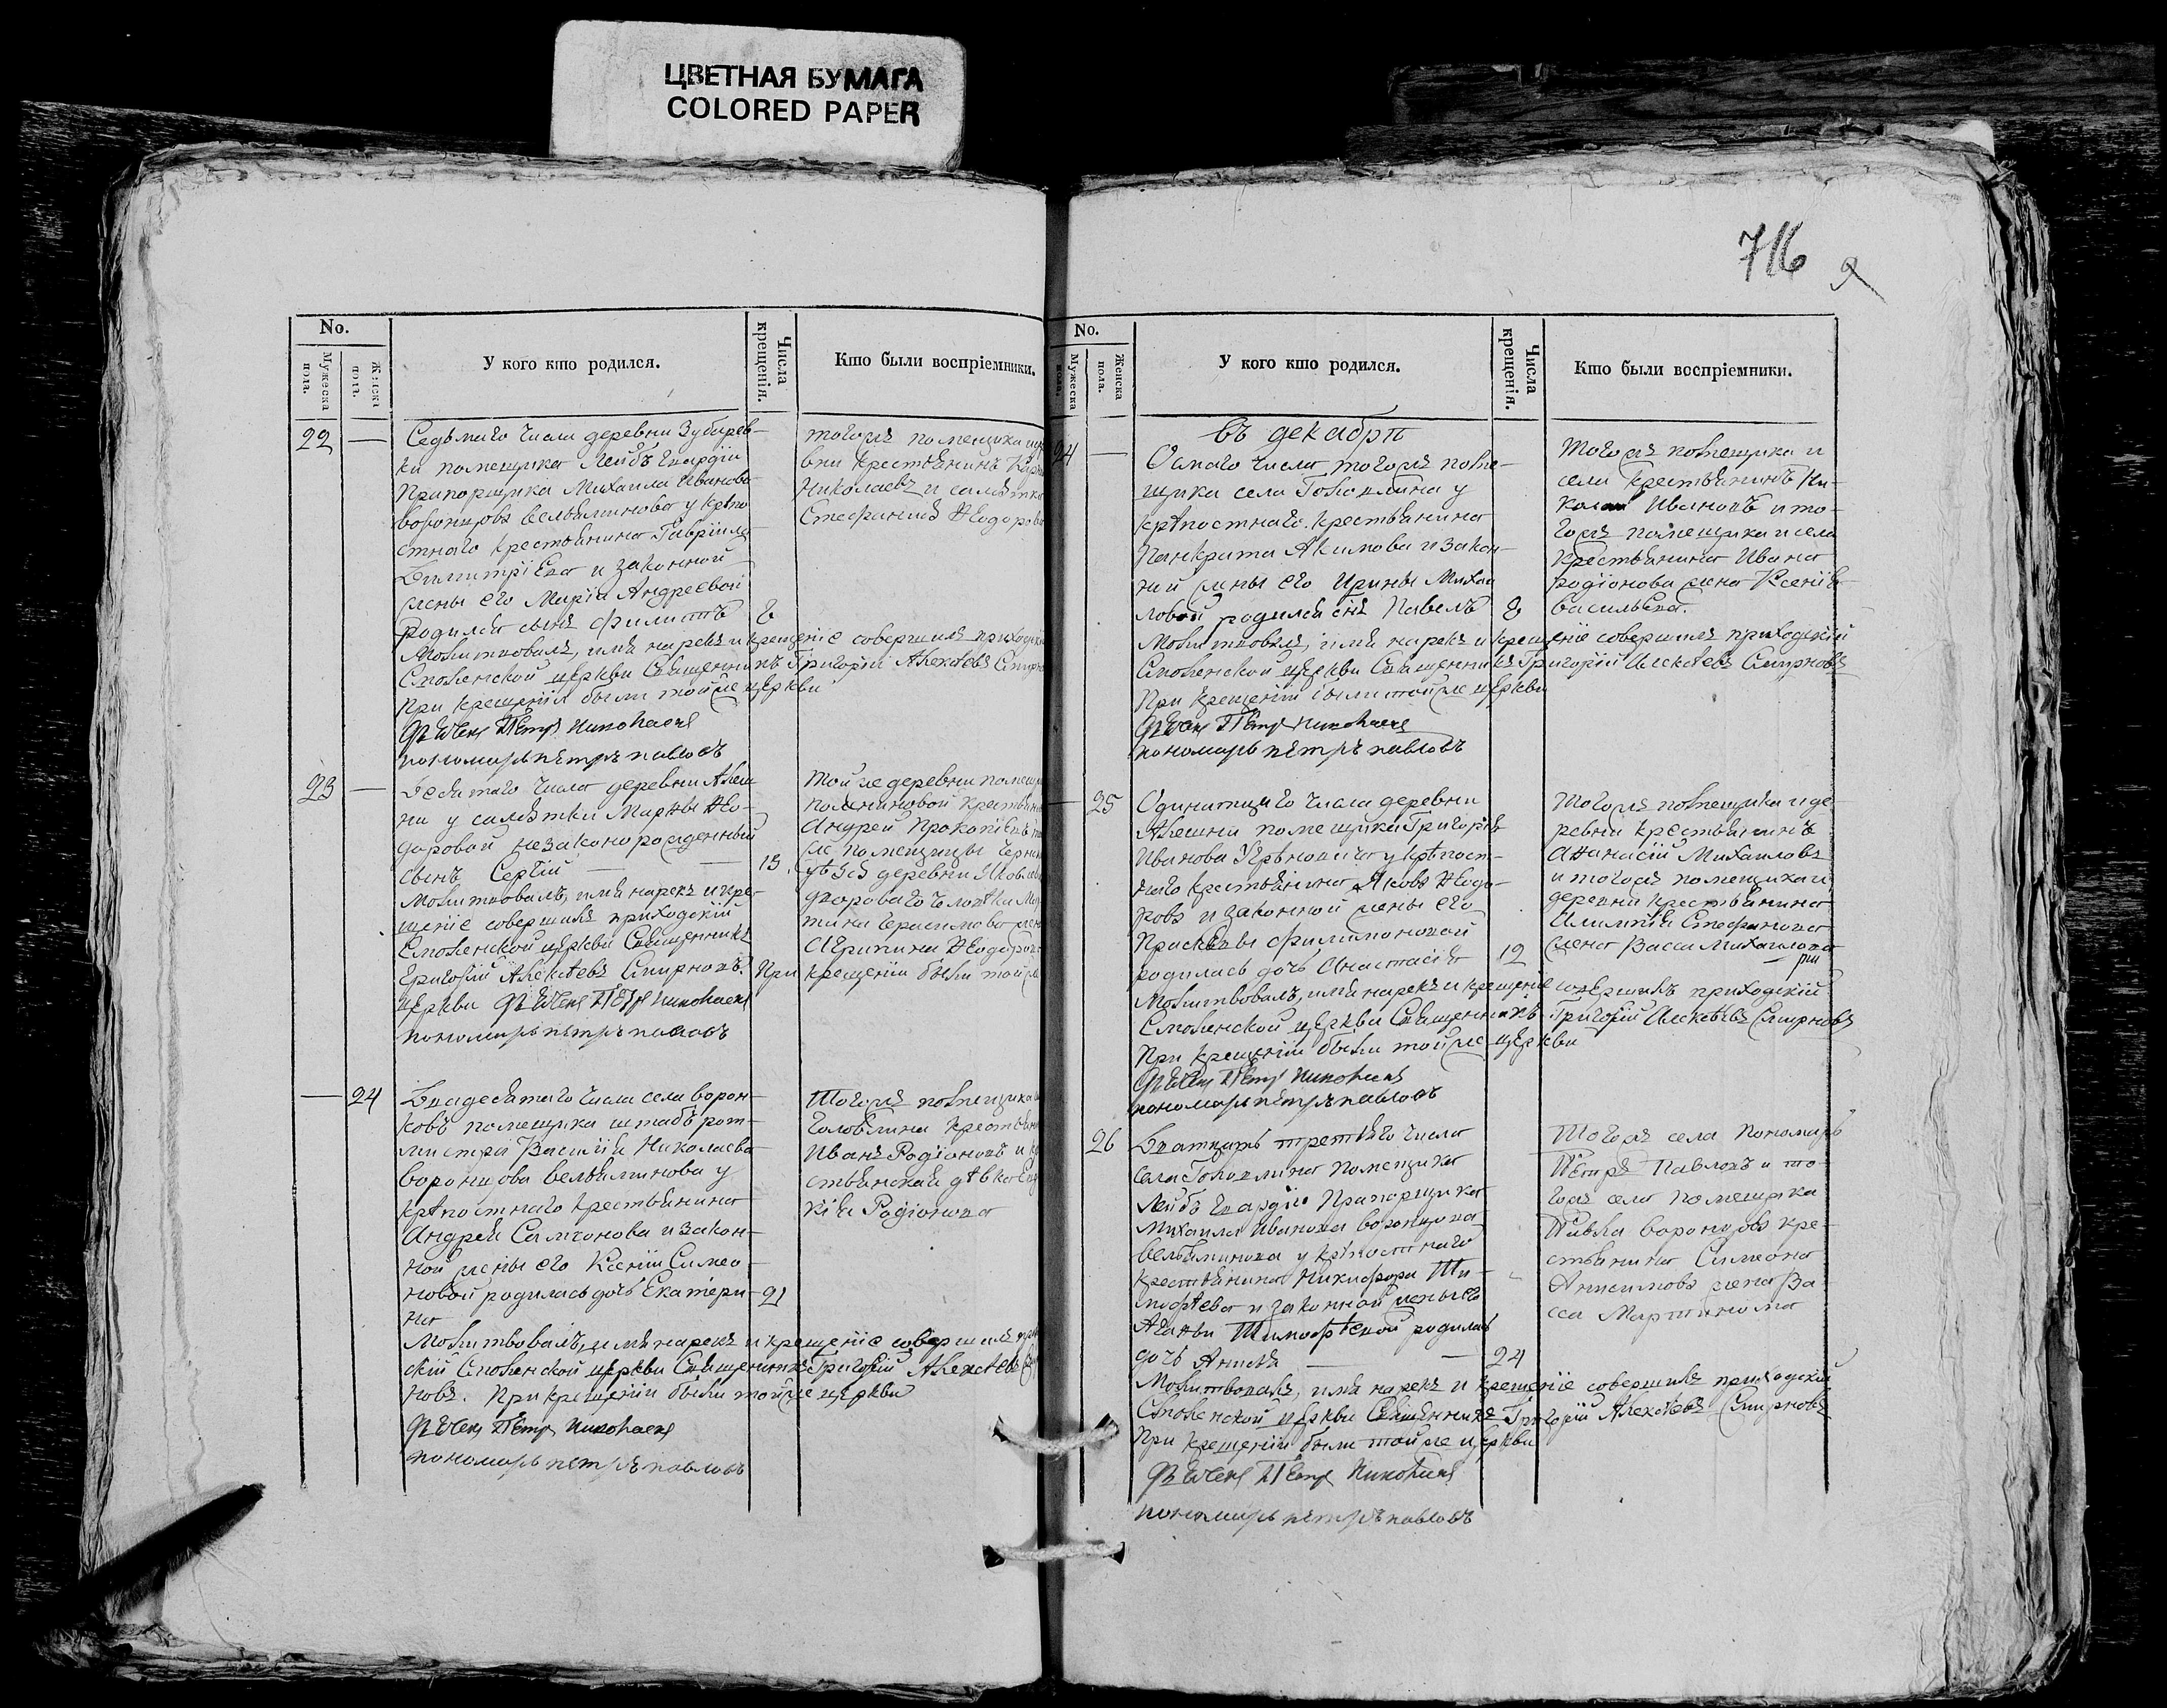 ЦВЕТНАЯ БУМАГА
COLORED PAPER
716
No.
Мужеска пола.
Женска пола.
У кого кто родился.
Числа крещенія.
Кто были воспріемники.
22 —
Седьмаго числа деревни Зубарев-
ки помещика Лейбъ Гвардіи
Прапорщика Михаила Иванова
Воронцова Вельяминова у крѣпо
стнаго крестьянина Гавріила
Димитріева и законной
жены его Маріи Андреевой
родился сынъ Филиппъ 8
Молитвовалъ, имя нарекъ и крещеніе совершилъ приходскій
Смоленской церкви Священникъ Григорій Алексѣевъ
При крещеніи были тойже церкви
Дьячекъ Петръ Николаевъ
пономарь петръ павловъ
тогожъ помещика
вни крестьянинъ
Николаевъ и солдатка
Стефанида Ѳедорова
23 —
Десятаго числа деревни Алеш
ни у солдатки Марѳы Ѳео-
доровой незаконорожденный
сынъ Сергій — 13.
Молитвовалъ, имя нарекъ и кре-
щеніе совершилъ приходскій
Смоленской церкви Священникъ
Григорій Алексѣевъ Смирновъ. При крещеніи были тойже
церкви Дьячекъ Петръ Николаевъ
пономарь петръ павловъ
Тойже деревни
крестьянинъ
Андрей Прокопіевъ
же помещицы
деревни
двороваго человѣка
Герасимова
Агрипина Ѳедорова
— 24
Двадесятаго числа села Ворон-
ковъ помещика штабъ рот-
мистра Василія Николаева
Воронцова Вельяминова у
крѣпостнаго крестьянина
Андрея Самсонова и закон-
ной жены его Ксеніи Симео-
новой родилась дочь Екатери- 21
на
Молитвовалъ, имя нарекъ и крещеніе совершилъ
скій Смоленской церкви Священникъ Григорій Алексѣевъ
новъ. При крещеніи были тойже церкви
Дьячекъ Петръ Николаевъ
пономарь петръ павловъ
Тогожъ помещика
Головлина
Иванъ Родіоновъ и
стьянская дѣвка
Родіонова
No.
Мужеска пола.
Женска пола.
У кого кто родился.
Числа крещенія.
Кто были воспріемники.
въ декабрѣ
24 —
Осмаго числа тогожъ поме-
щика села Головлина у
крѣпостнаго крестьянина
Панкрата Акимова и закон-
ной жены его Ирины Михаи
ловой родился сынъ Павелъ 8
Молитвовалъ, имя нарекъ и крещеніе совершилъ приходскій
Смоленской церкви Священникъ Григорій Алексѣевъ Смирновъ
При крещеніи были тойже церкви
Дьячекъ Петръ Николаевъ
пономарь петръ павловъ
Тогожъ помещика и
села крестьянинъ Ни-
колай Ивановъ и то-
гожъ помещика и села
крестьянина Ивана
Родіонова жена Ксенія
Васильева.
— 25
Одинатцаго числа деревни
Алешни помещика Григорія
Иванова у крѣпост-
наго крестьянина Якова Ѳедо-
рова и законной жены его
Прасковьи Филимоновой
родилась дочь Анастасія 12
Молитвовалъ, имя нарекъ и крещеніе совершилъ приходскій
Смоленской церкви Священникъ Григорій Алексѣевъ Смирновъ
При крещеніи были тойже церкви
Дьячекъ Петръ Николаевъ
пономарь петръ павловъ
Тогожъ помещика и де-
ревни крестьянинъ
Аѳанасій Михаиловъ
и тогожъ помещика и
деревни крестьянина
Стефанова
жена Васса Михаилова
26
Дватцать третьяго числа
села Головлина помещика
Лейбъ Гвардіи Прапорщика
Михаила Иванова Воронцова
Вельяминова у крѣпостнаго
крестьянина Никифора Ти-
мофѣева и законной жены его
Агафьи Тимофѣевой родилась
дочь Анисья — 24
Молитвовалъ, имя нарекъ и крещеніе совершилъ приходскій
Смоленской церкви Священникъ Григорій Алексѣевъ Смирновъ
При крещеніи были тойже церкви
Дьячекъ Петръ Николаевъ
пономарь петръ павловъ
Тогожъ села пономарь
Петръ Павловъ и то-
гожъ села помещика
Павла Воронцова кре-
стьянина Симеона
Анисимова жена Ва-
сса Мартинова